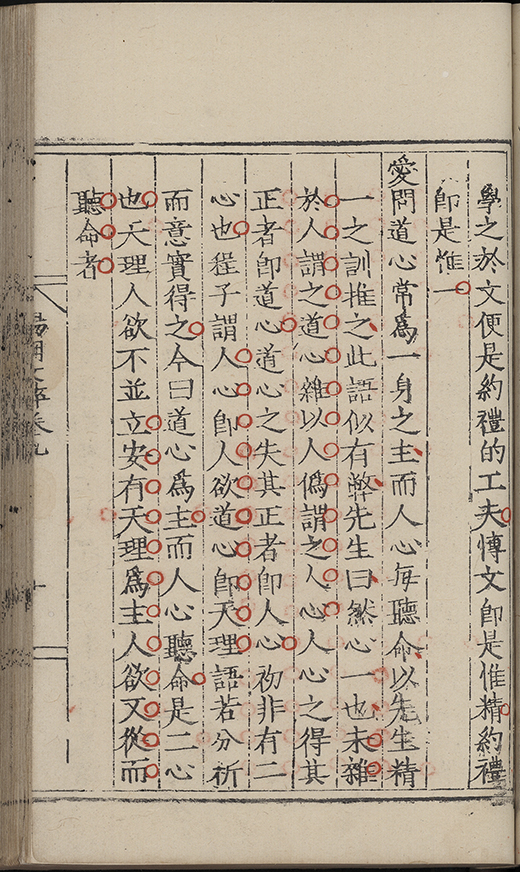 學之於文便是約禮的工夫愽文即是惟精約禮
即是惟一
愛問道心常為一身之主而人心每聽命以先生精
一之訓推之此語似有弊先生曰然心一也未雜
於人謂之道心雜以人偽謂之人心人心之得其
正者即道心道心之失其正者即人心初非有二
心也程子謂人心即人欲道心即天理語若分析
而意實得之今曰道心為主而人心聽命是二心
也天理人欲不並立安有天理為主人欲又從而
聽命者
陽明文卷九
十